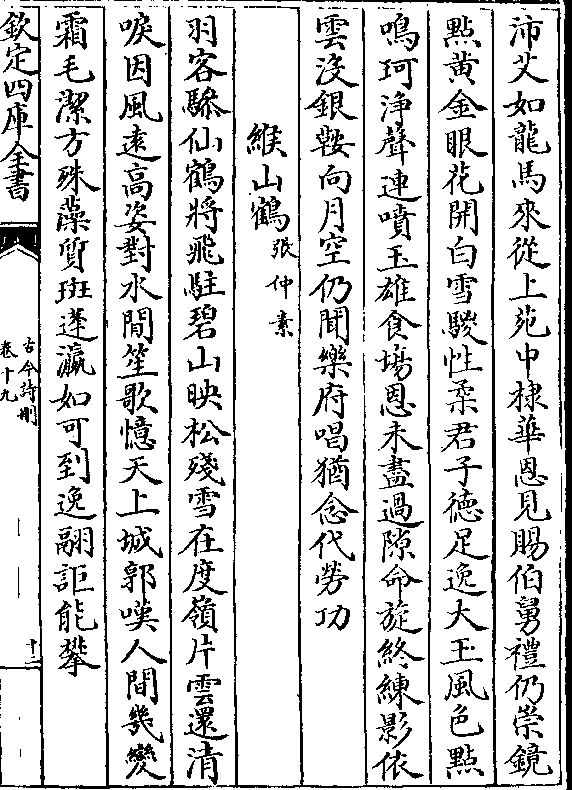 沛艾如龍馬來從上苑中棣華恩見賜伯舅禮仍崇鏡
點黃金眼花開白雪騣性柔君子德足逸大王風色點
鳴珂淨聲連噴玉雄食場恩未盡過隙命旋終練影依
雲沒銀鞍向月空仍聞樂府唱猶念代勞功
緱山鶴張仲素
羽客驂仙鶴將飛駐碧山映松殘雪在度嶺片雲還清
唳因風遠高姿對水閒笙歌憶天上城郭嘆人間幾變
霜毛潔方殊藻質斑蓬瀛如可到逸翮詎能攀
欽定四庫全書
古今詩刪
卷十九
十三